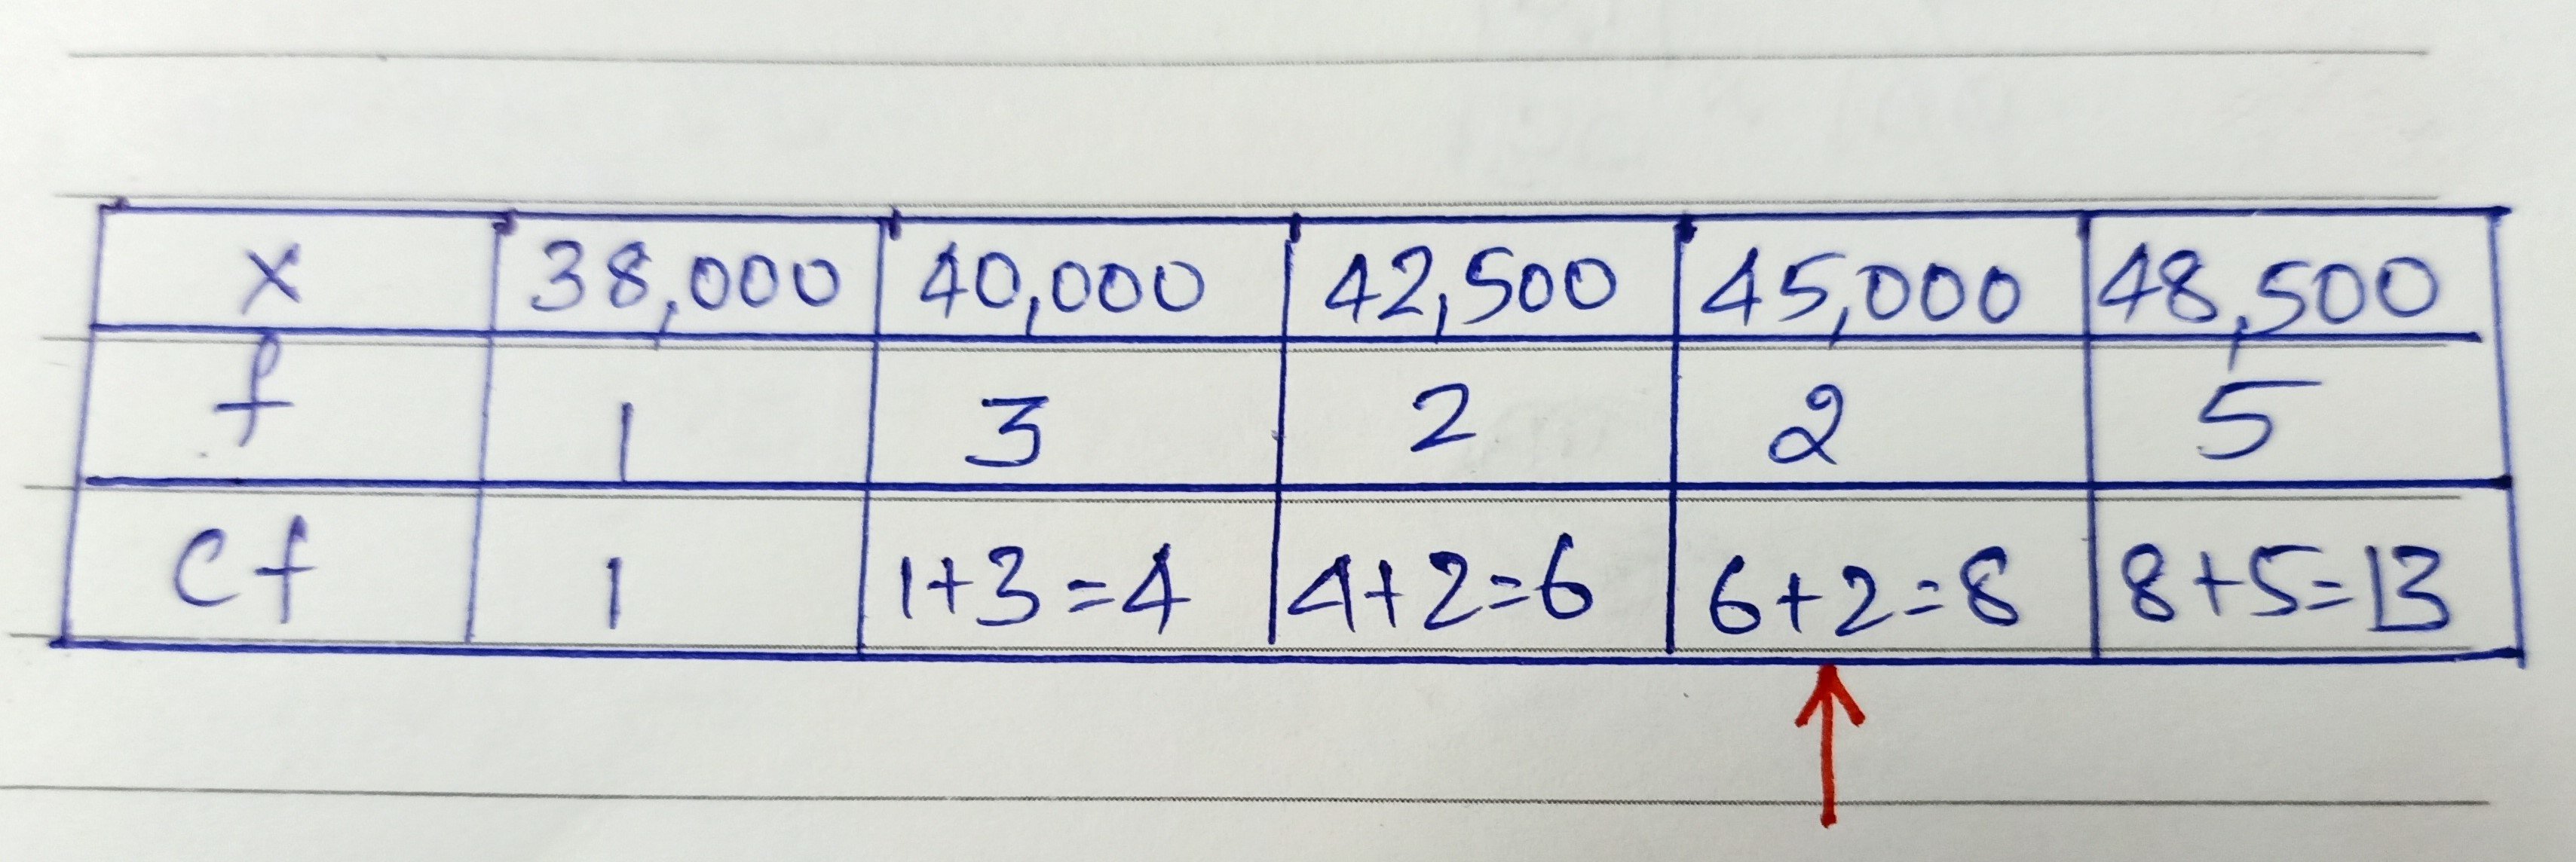 x 38,000 40,000 42,500 45,000 48,500
f 1 3 2 2 5
cf 1 1+3=4 4+2=6 6+2=8 8+5=13